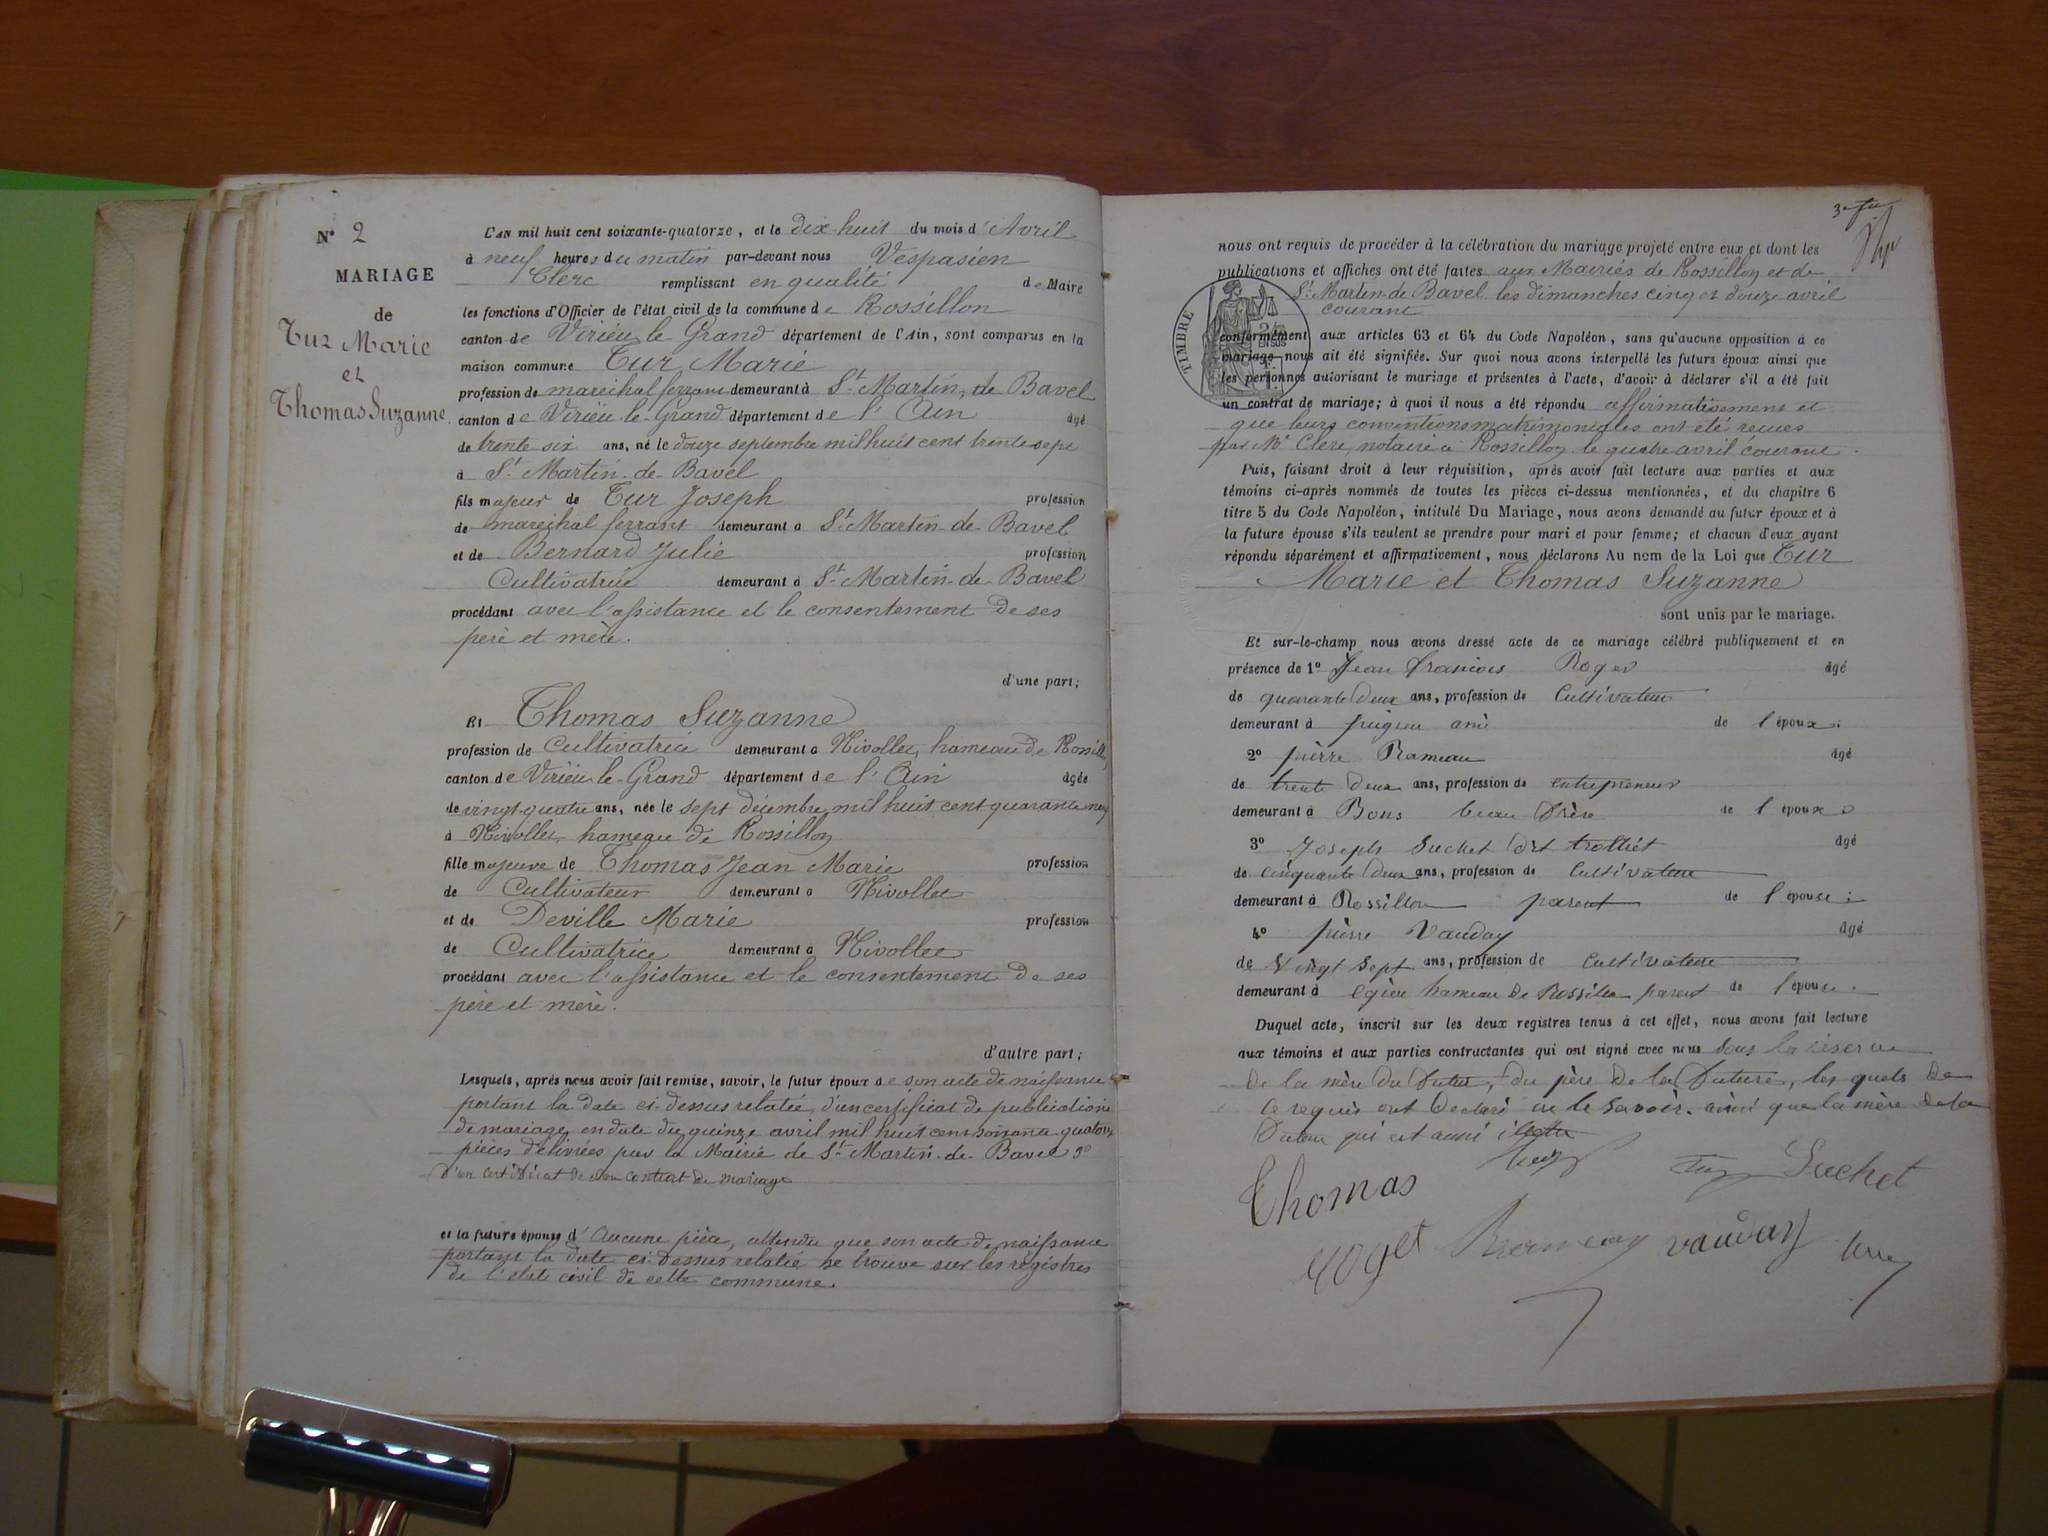 N° 2
MARIAGE
de
Tur Marie
et
Thomas Suzanne
L'AN mil huit cent soixante-quatorze, et le dix huit du mois d'Avril
à neuf heures du matin par-devant nous Vespasien
Clerc remplissant en qualité de Maire
les fonctions d'Officier de l'état civil de la commune de Rossillon
canton de Virieu le Grand département de l'Ain, sont comparus en la
maison commune Tur Marie
profession de maréchal ferrant demeurant à St Martin de Bavel
canton de Virieu le Grand département de l'Ain âgé
de trente six ans, né le douze septembre mil huit cent trente sept
à St Martin-de-Bavel
fils majeur de Tur Joseph profession
de maréchal ferrant demeurant à St Martin-de-Bavel
et de Bernard Julie profession
Cultivatrice demeurant à St Martin-de-Bavel
procédant avec l'assistance et le consentement de ses
père et mère.
d'une part;
Et Thomas Suzanne
profession de Cultivatrice demeurant à Nivollet, hameau de Rossillon
canton de Virieu-le-Grand département de l'Ain âgée
de vingt-quatre ans, née le sept décembre mil huit cent quarante neuf
à Nivollet hameau de Rossillon
fille majeure de Thomas Jean Marie profession
de Cultivateur demeurant à Nivollet
et de Deville Marie profession
de Cultivatrice demeurant à Nivollet
procédant avec l'assistance et le consentement de ses
père et mère.
d'autre part;
Lesquels, après nous avoir fait remise, savoir, le futur époux de son acte de naissance
portant la date ci-dessus relatée, d'un certificat de publication
de mariage en date du quinze avril mil huit cent soixante quatorze
pièces délivrées par la Mairie de St Martin-de-Bavel 3°
d'un certificat de contrat de mariage
et la future épouse d'Aucune pièce, attendu que son acte de naissance
portant la date ci-dessus relatée se trouve sur les régistres
de l'état civil de cette commune.
nous ont requis de procéder à la célébration du mariage projeté entre eux et dont les
publications et affiches ont été faites aux Mairies de Rossillon et de
St Martin-de Bavel les dimanches cinq et douze avril
courant
TIMBRE
conformément aux articles 63 et 64 du Code Napoléon, sans qu'aucune opposition à ce
mariage nous ait été signifiée. Sur quoi nous avons interpellé les futurs époux ainsi que
les personnes autorisant le mariage et présentes à l'acte, d'avoir à déclarer s'il a été fait
un contrat de mariage; à quoi il nous a été répondu affirmativement et
que leurs conventions matrimoniales ont été reçues
par Me Clerc, notaire à Rossillon le quatre avril courant.
Puis, faisant droit à leur réquisition, après avoir fait lecture aux parties et aux
témoins ci-après nommés de toutes les pièces ci-dessus mentionnées, et du chapitre 6
titre 5 du Code Napoléon, intitulé Du Mariage, nous avons demandé au futur époux et à
la future épouse s'ils veulent se prendre pour mari et pour femme; et chacun d'eux ayant
répondu séparément et affirmativement, nous déclarons Au nom de la Loi que Tur
Marie et Thomas Suzanne
sont unis par le mariage.
Et sur-le-champ nous avons dressé acte de ce mariage célébré publiquement et en
présence de 1° Jean françois Roger âgé
de quarante deux ans, profession de Cultivateur
demeurant à pugieu ami de l'époux;
2° pierre Rameau âgé
de trente deux ans, profession de entrepreneur
demeurant à Bons beau frère de l'époux;
3° Joseph Suchet dit trolliet âgé
de cinquante deux ans, profession de Cultivateur
demeurant à Rossillon parent de l'épouse;
4° pierre Vauday âgé
de Vingt Sept ans, profession de Cultivateur
demeurant à Egieu hameau de Rossillon parent de l'épouse.
Duquel acte, inscrit sur les deux registres tenus à cet effet, nous avons fait lecture
aux témoins et aux parties contractantes qui ont signé avec nous sous la réserve
de la mère du futur, du père de la future, les quels de
ce requis ont déclaré ne le savoir. ainsi que la mère de la
future qui est aussi
Tur Suchet
Thomas
Roget Rameau vauday